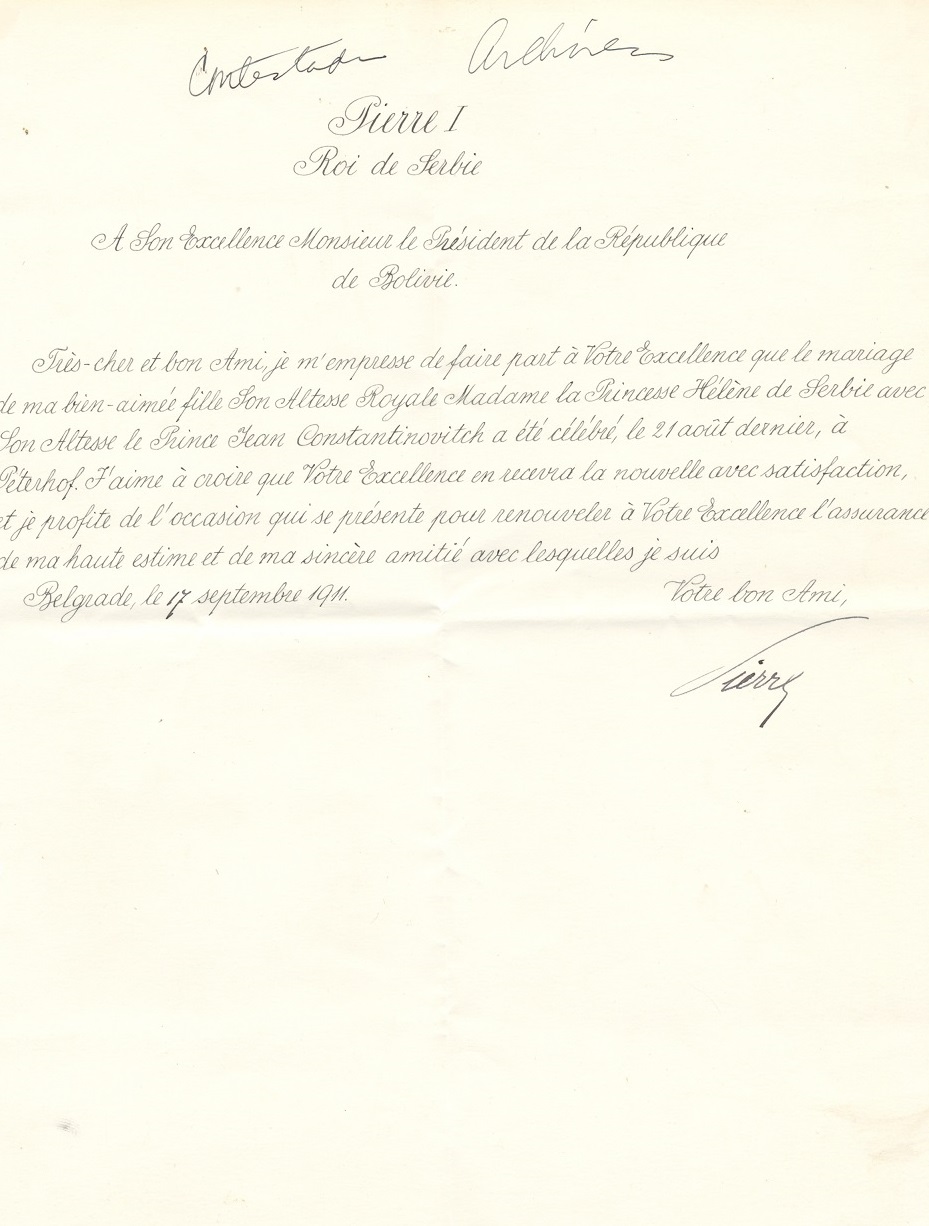 Contestado Archívese
Pierre I
Roi de Serbie
A Son Excellence Monsieur le Président de la République
de Bolivie.
Très-cher et bon Ami, je m'empresse de faire part à Votre Excellence que le mariage
de ma bien-aimée fille Son Altesse Royale Madame la Princesse Hélène de Serbie avec
Son Altesse le Prince Jean Constantinovitch a été célébré, le 21 août dernier, à
Péterhof. J'aime à croire que Votre Excellence en recevra la nouvelle avec satisfaction,
et je profite de l'occasion qui se présente pour renouveler à Votre Excellence l'assurance
de ma haute estime et de ma sincère amitié avec lesquelles je suis
Belgrade, le 17 septembre 1911. Votre bon Ami,
Pierre